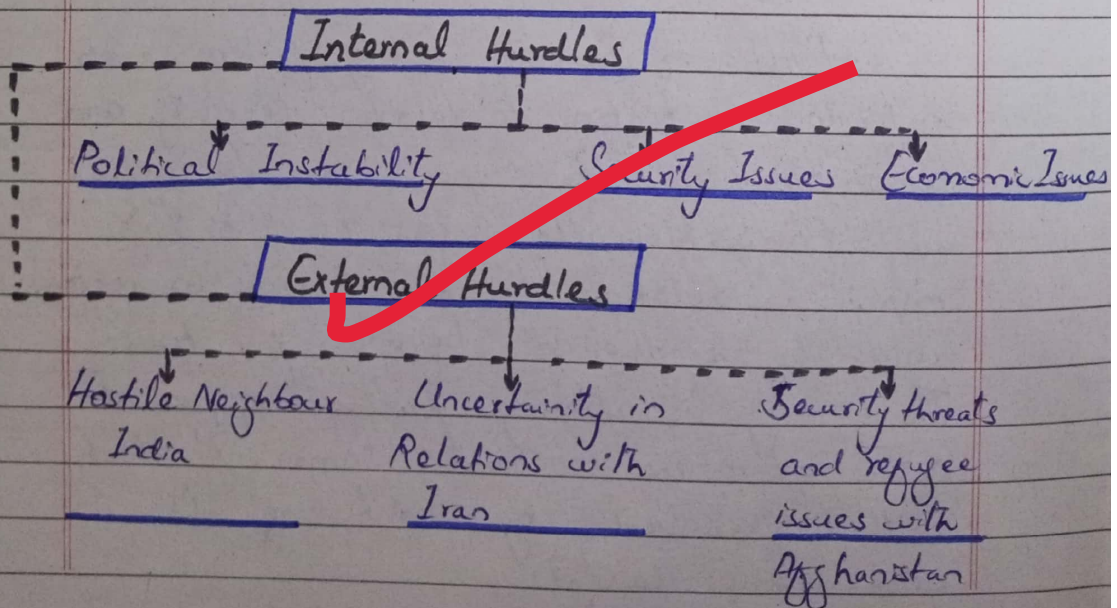 Internal Hurdles
Political Instability
Security Issues
Economic Issues
External Hurdles
Hostile Neighbour
India
Uncertainity in
Relations with
Iran
Security threats
and refugee
issues with
Afghanistan